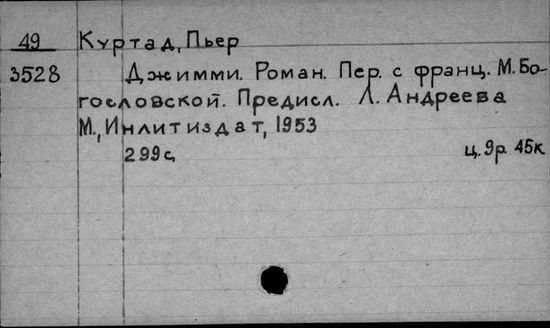 49 Куртад, Пьер
3528 Джимми. Роман. Пер. с франц. М. Бо-
гословской. Предисл. Л. Андреева
М., Инлитиздат, 1953
299 с. ц. 9р. 45к